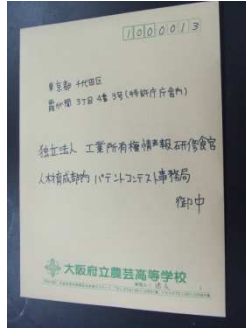 1000013
東京都 千代田区
霞が関 3丁目 4番 3号(特許庁庁舎内)
独立法人 工業所有権情報研修館
人材育成部内 パテントコンテスト事務局
御中
大阪府立農芸高等学校